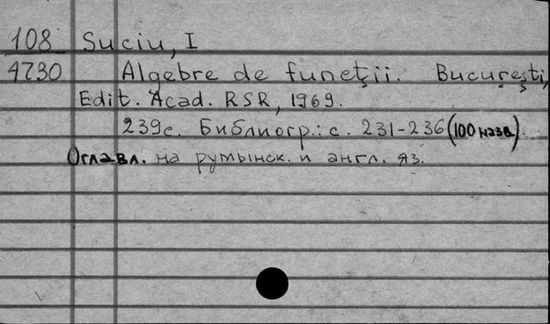 108 Suciu, I
4730 Algebre de funcţii. Bucureşti,
Edit. Acad. RSR, 1969.
239с. Библиогр.: с. 231-236 (100 назв).
Оглавл. на румынск. и англ. яз.